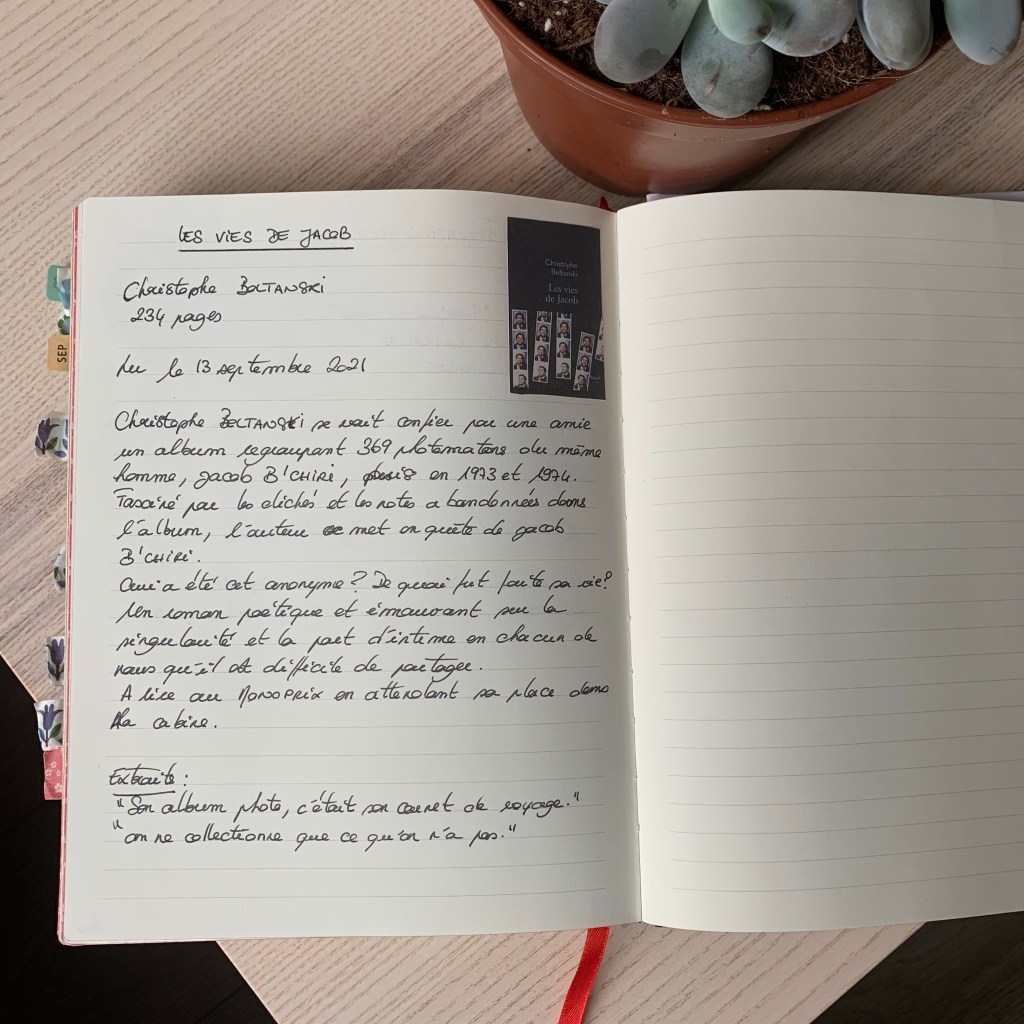 LES VIES DE JACOB
Christophe BOLTANSKI
234 pages
Lu le 13 septembre 2021
Christophe BOLTANSKI se voit confier par une amie
un album regroupant 369 photomatons du même
homme, Jacob B'CHIRI, pris en 1973 et 1974.
Fasciné par les clichés et les notes abandonnées dans
l'album, l'auteur se met en quête de Jacob
B'CHIRI.
Qui a été cet anonyme ? De quoi fut faite sa vie ?
Un roman poétique et émouvant sur la
singularité et la part d'intime en chacun de
nous qu'il est difficile de partager.
A lire au MONOPRIX en attendant sa place dans
la cabine.
Extraits :
"Son album photo, c'était son carnet de voyage."
"on ne collectionne que ce qu'on n'a pas."
Christophe
Boltanski
Les vies
de Jacob
SEP